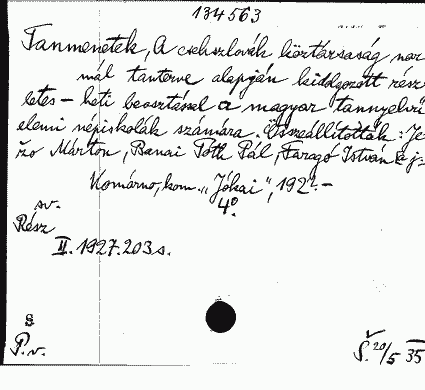 134563
Tanmenetek, A csehszlovák köztársaság nor
mál tanterve alapján kidolgozott rész
letes - heti beosztással a magyar tannyelvű
elemi népiskolák számára. Összeállították: Je-
zsó Márton, Banai Tóth Pál, Faragó István
Komárno, kom. "Jókai", 192?.-
4º.
sv.
Rész
II. 1927. 203 s.
S
P.v.
Š. 20/5 35